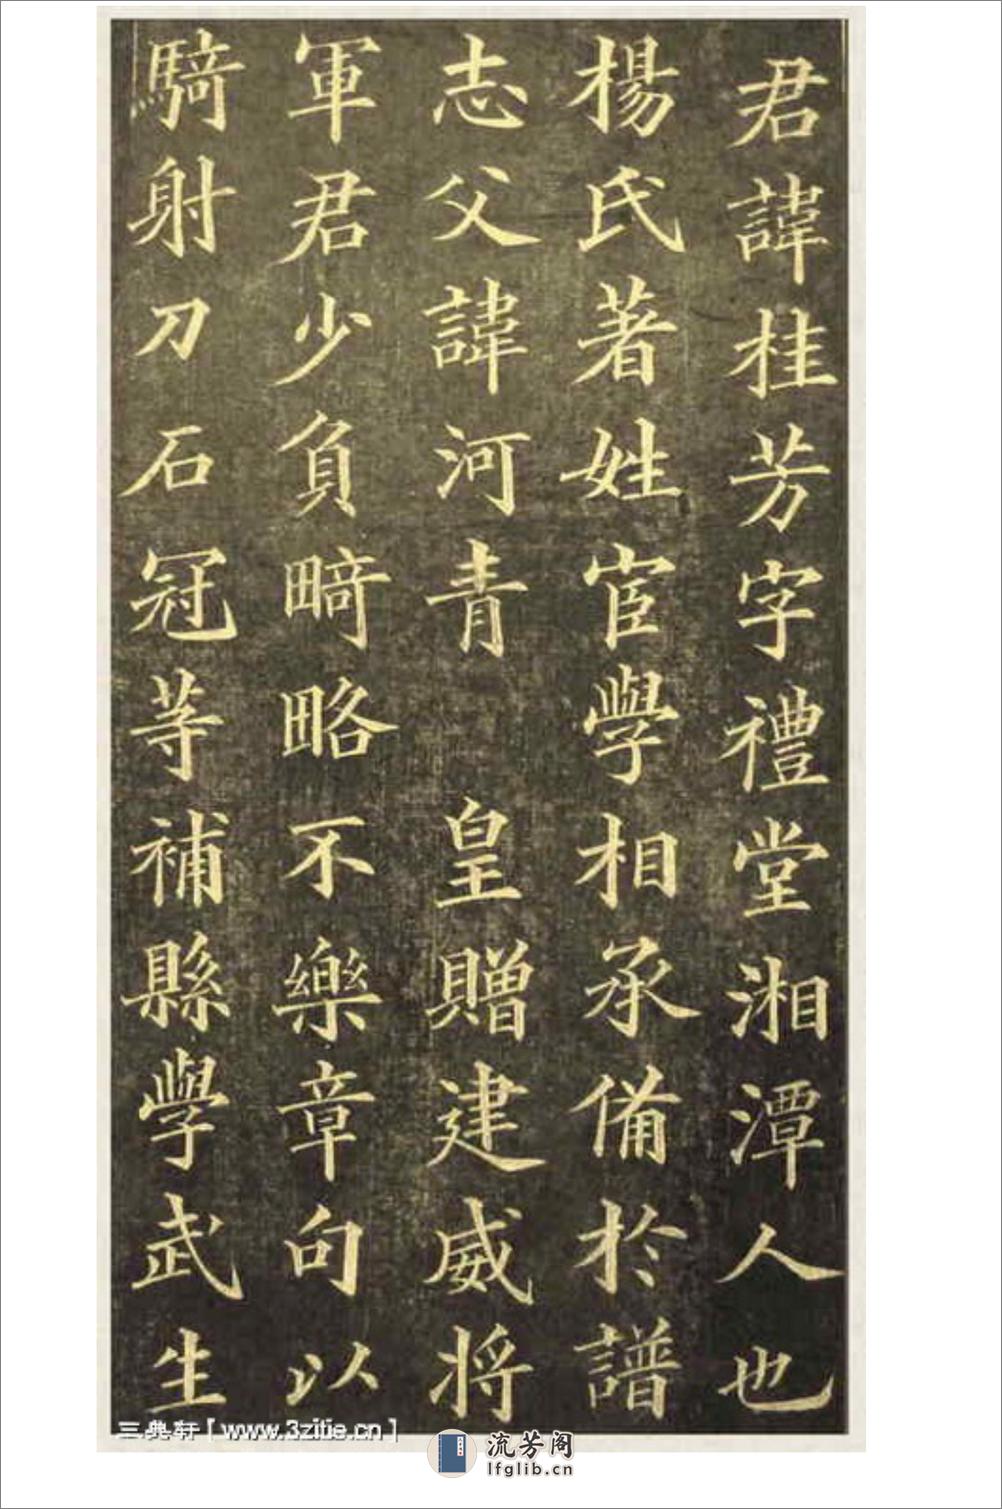 君諱桂芳字禮堂湘潭人也
楊氏著姓宦學相承備於譜
志父諱河青 皇贈建威将
軍君少負畸略不樂章句以
騎射刀石冠等補縣學武生
三典轩[www.3zitie.cn]
流芳阁
lfglib.cn